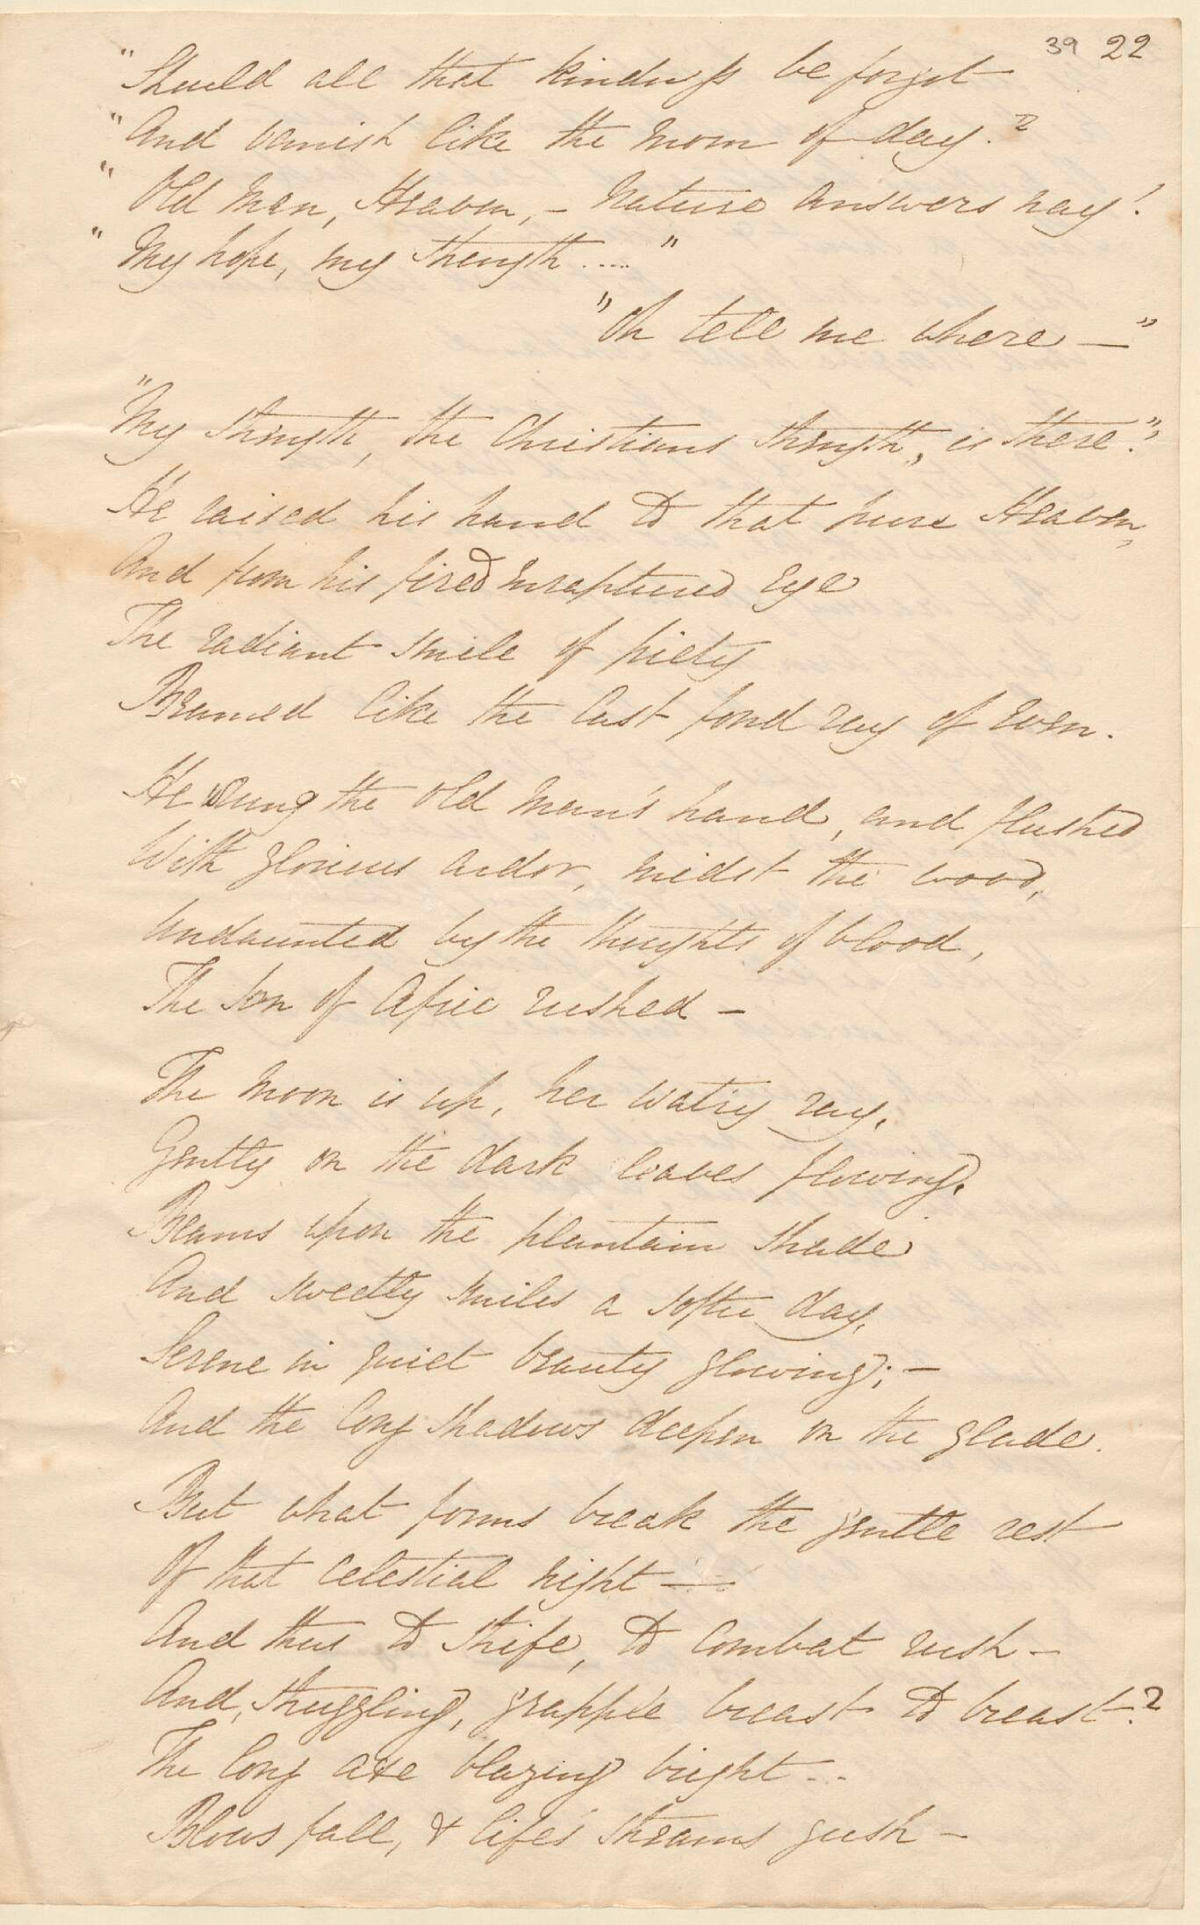 39 22
"Should all that kindness be forgot
"And vanish like the morn of day.?
"Old Man, Heaven, – Nature answers nay!
"My hope, my strength ...."
"Oh tell me where —"
"My strength, the Christians strength, is there."
He raised his hand to that pure Heaven,
And from his fired enraptured eye
The radiant smile of piety
Beamed like the last fond ray of Even.
He wrung the old Man's hand, and flushed
With glorious ardor, midst the wood,
Undaunted by the thoughts of blood,
The Son of Afric rushed –
The Moon is up, her watry ray,
Gently on the dark leaves flowing,
Beams upon the plantain shade
And sweetly smiles a softer day,
Serene in quiet beauty glowing; –
And the long shadows deepen on the glade.
But what forms break the gentle rest
Of that celestial night —
And thus to strife, to combat rush –
And, struggling, grapple breast to breast.?
The long axe blazing bright ...
Blows fall, & life's streams gush –